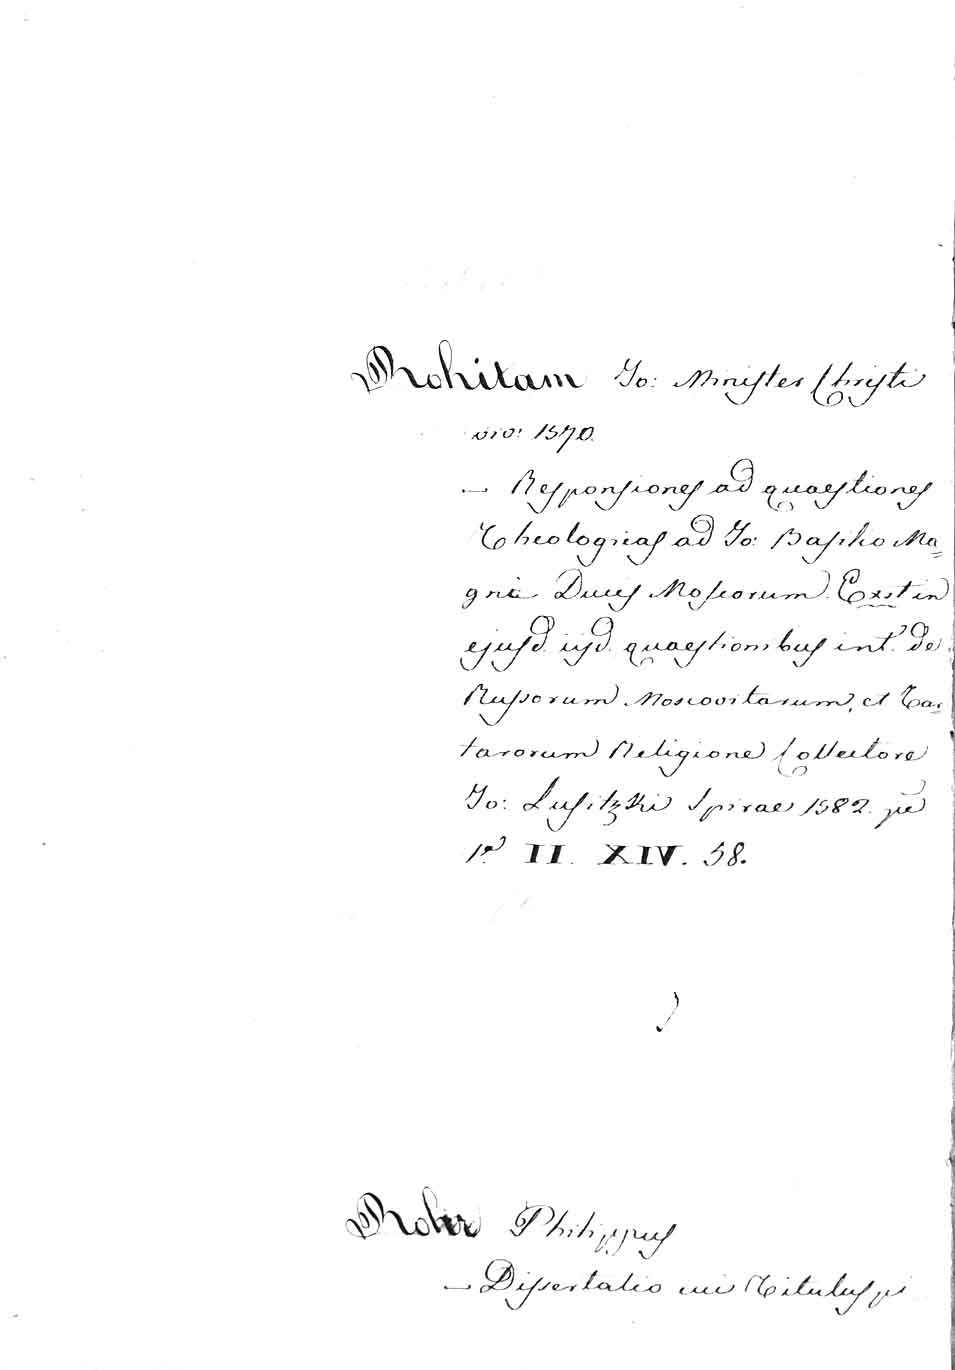 Rohitam Jo: Minister Christi
viv: 1570.
— Responsiones ad quaestiones
Theologicas ad Jo: Basilio Ma=
gni Ducis Moscorum. Exst in
ejusd. iisd. quaestionibus int. de
Russorum Moscovitarum, et Tar=
tarorum Religione Collectore
Jo: Lasitzki Spirae 1582.
II. XIV. 58.
Rohr Philippus
— Dissertatio cui Titulus